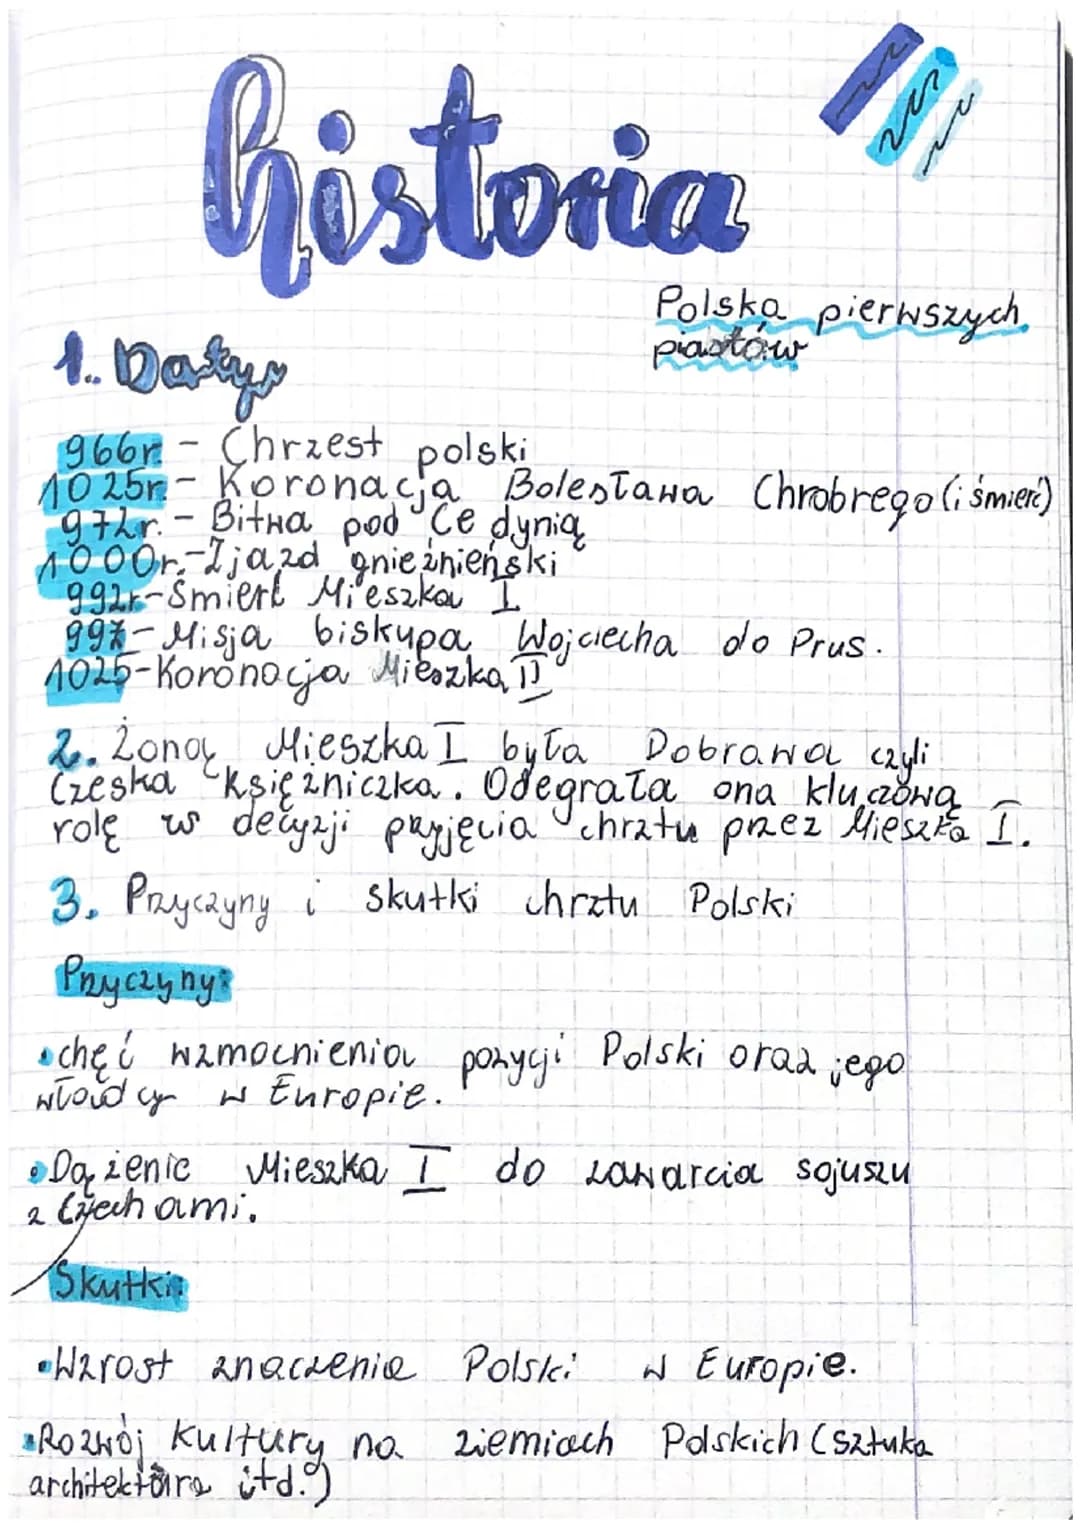 historia
Polska pierwszych
piastów
1. Daty
966r. - Chrzest polski
1025r. - Koronacja Bolesława Chrobrego (i śmierć)
972r. - Bitwa pod Cedynią
1000r. - Zjazd gnieźnieński
992r - Śmierć Mieszka I
997 - Misja biskupa Wojciecha do Prus.
1025 - Koronacja Mieszka II
2. Żoną Mieszka I była Dobrawa czyli
Czeska księżniczka. Odegrała ona kluczową
rolę w decyzji przyjęcia chrztu przez Mieszka I.
3. Przyczyny i skutki chrztu Polski
Przyczyny:
• chęć wzmocnienia pozycji Polski oraz jego
władcy w Europie.
• Dążenie Mieszka I do zawarcia sojuszu
z Czechami.
Skutki:
• Wzrost znaczenia Polski w Europie.
• Rozwój kultury na ziemiach Polskich (sztuka
architektura itd.)